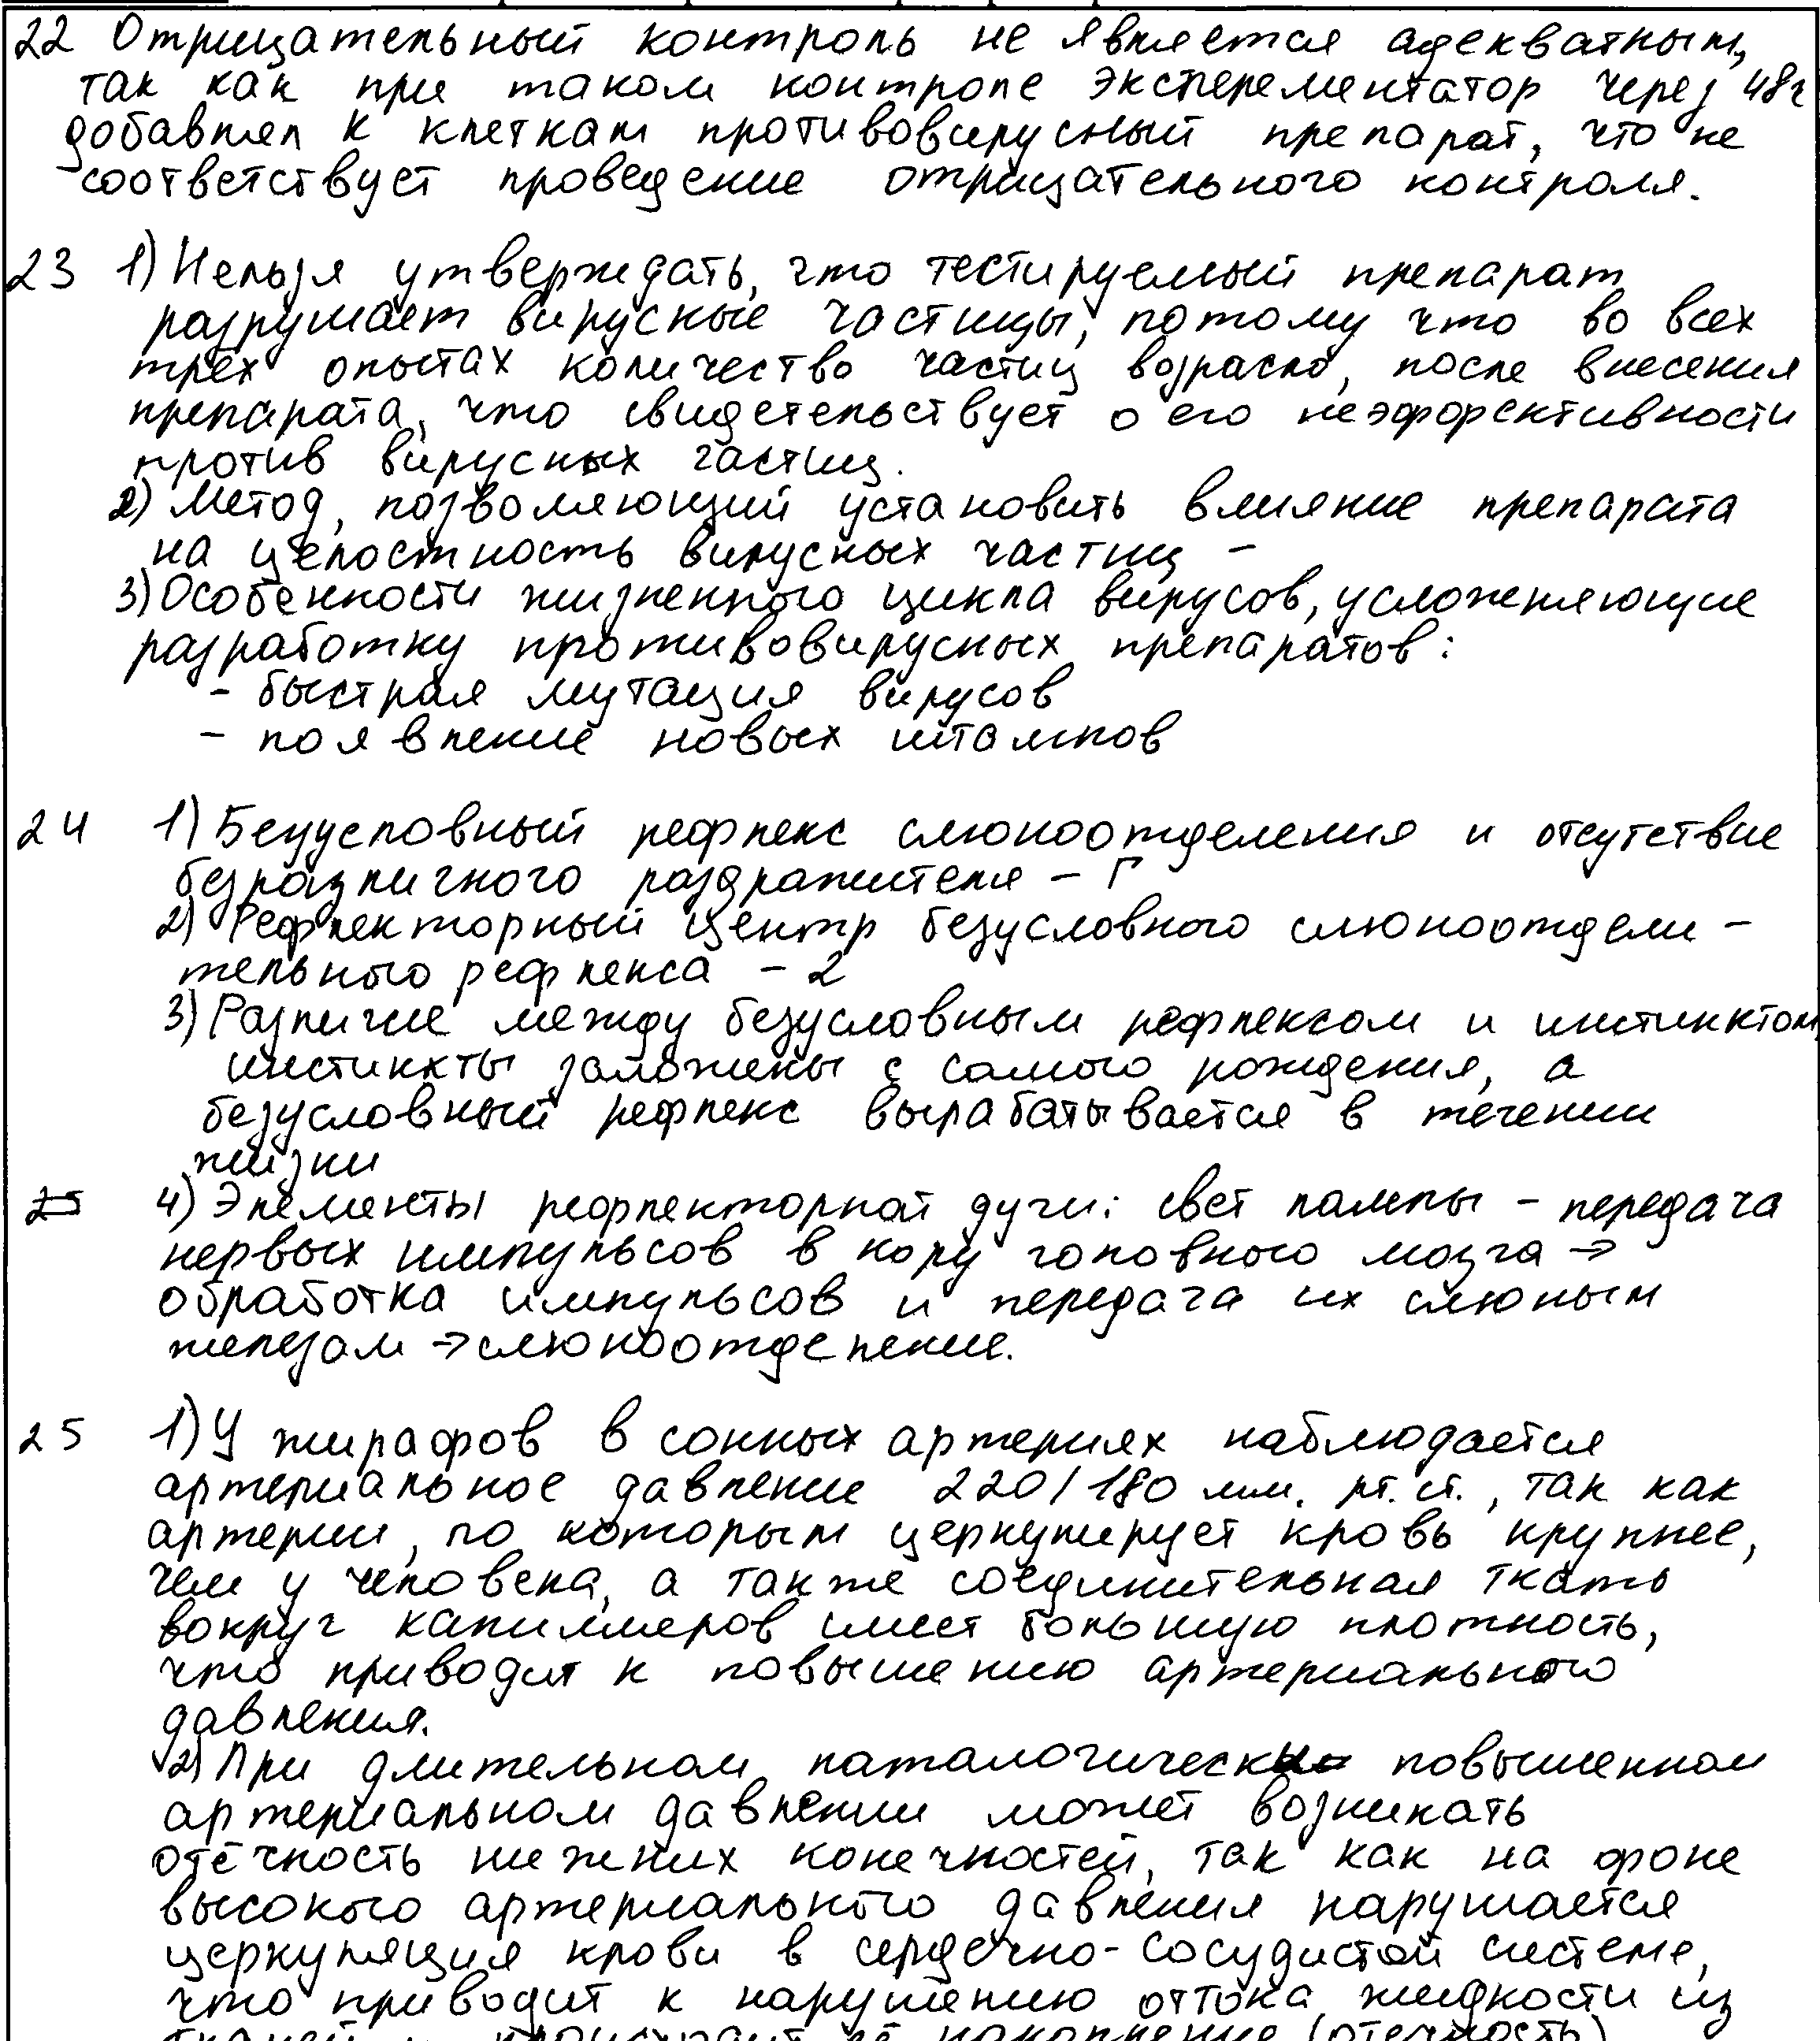 22 Отрицательный контроль не является адекватным,
так как при таком контроле эксперементатор через 48ч
добавлял к клеткам противовирусный препарат, что не
соответствует проведение отрицательного контроля.
23 1) Нельзя утверждать, что тестируемый препарат
разрушает вирусные частицы, потому что во всех
трёх опытах количество частиц возрасло, после внесения
препарата, что свидетельствует о его неэффективности
против вирусных частиц.
2) Метод, позволяющий установить влияние препарата
на целостность вирусных частиц –
3) Особенности жизненного цикла вирусов, усложняющие
разработку противовирусных препаратов:
- быстрая мутация вирусов
- появление новых штаммов
24 1) Безусловный рефлекс слюноотделения и отсутствие
безразличного раздражителя – Г
2) Рефлекторный центр безусловного слюноотдели-
тельного рефлекса – 2
3) Различие между безусловным рефлексом и инстинктом,
инстинкты заложены с самого рождения, а
безусловный рефлекс вырабатывается в течении
жизни
25 4) Элементы рефлекторной дуги: свет лампы – передача
нервых импульсов в кору головного мозга →
обработка импульсов и передача их слюным
железам → слюноотделение.
25 1) У жирафов в сонных артериях наблюдается
артериальное давление 220/180 мм. рт. ст., так как
артерии, по которым церкулирует кровь крупнее,
чем у человека, а также соединительная ткань
вокруг капилляров имеет большую плотность,
что приводит к повышению артериального
давления.
2) При длительном паталогически повышенном
артериальном давлении может возникать
отёчность нижних конечностей, так как на фоне
высокого артериального давления нарушается
церкуляция крови в сердечно-сосудистой системе,
что приводит к нарушению оттока жидкости из
тканей и происходит её накопление (отечность)